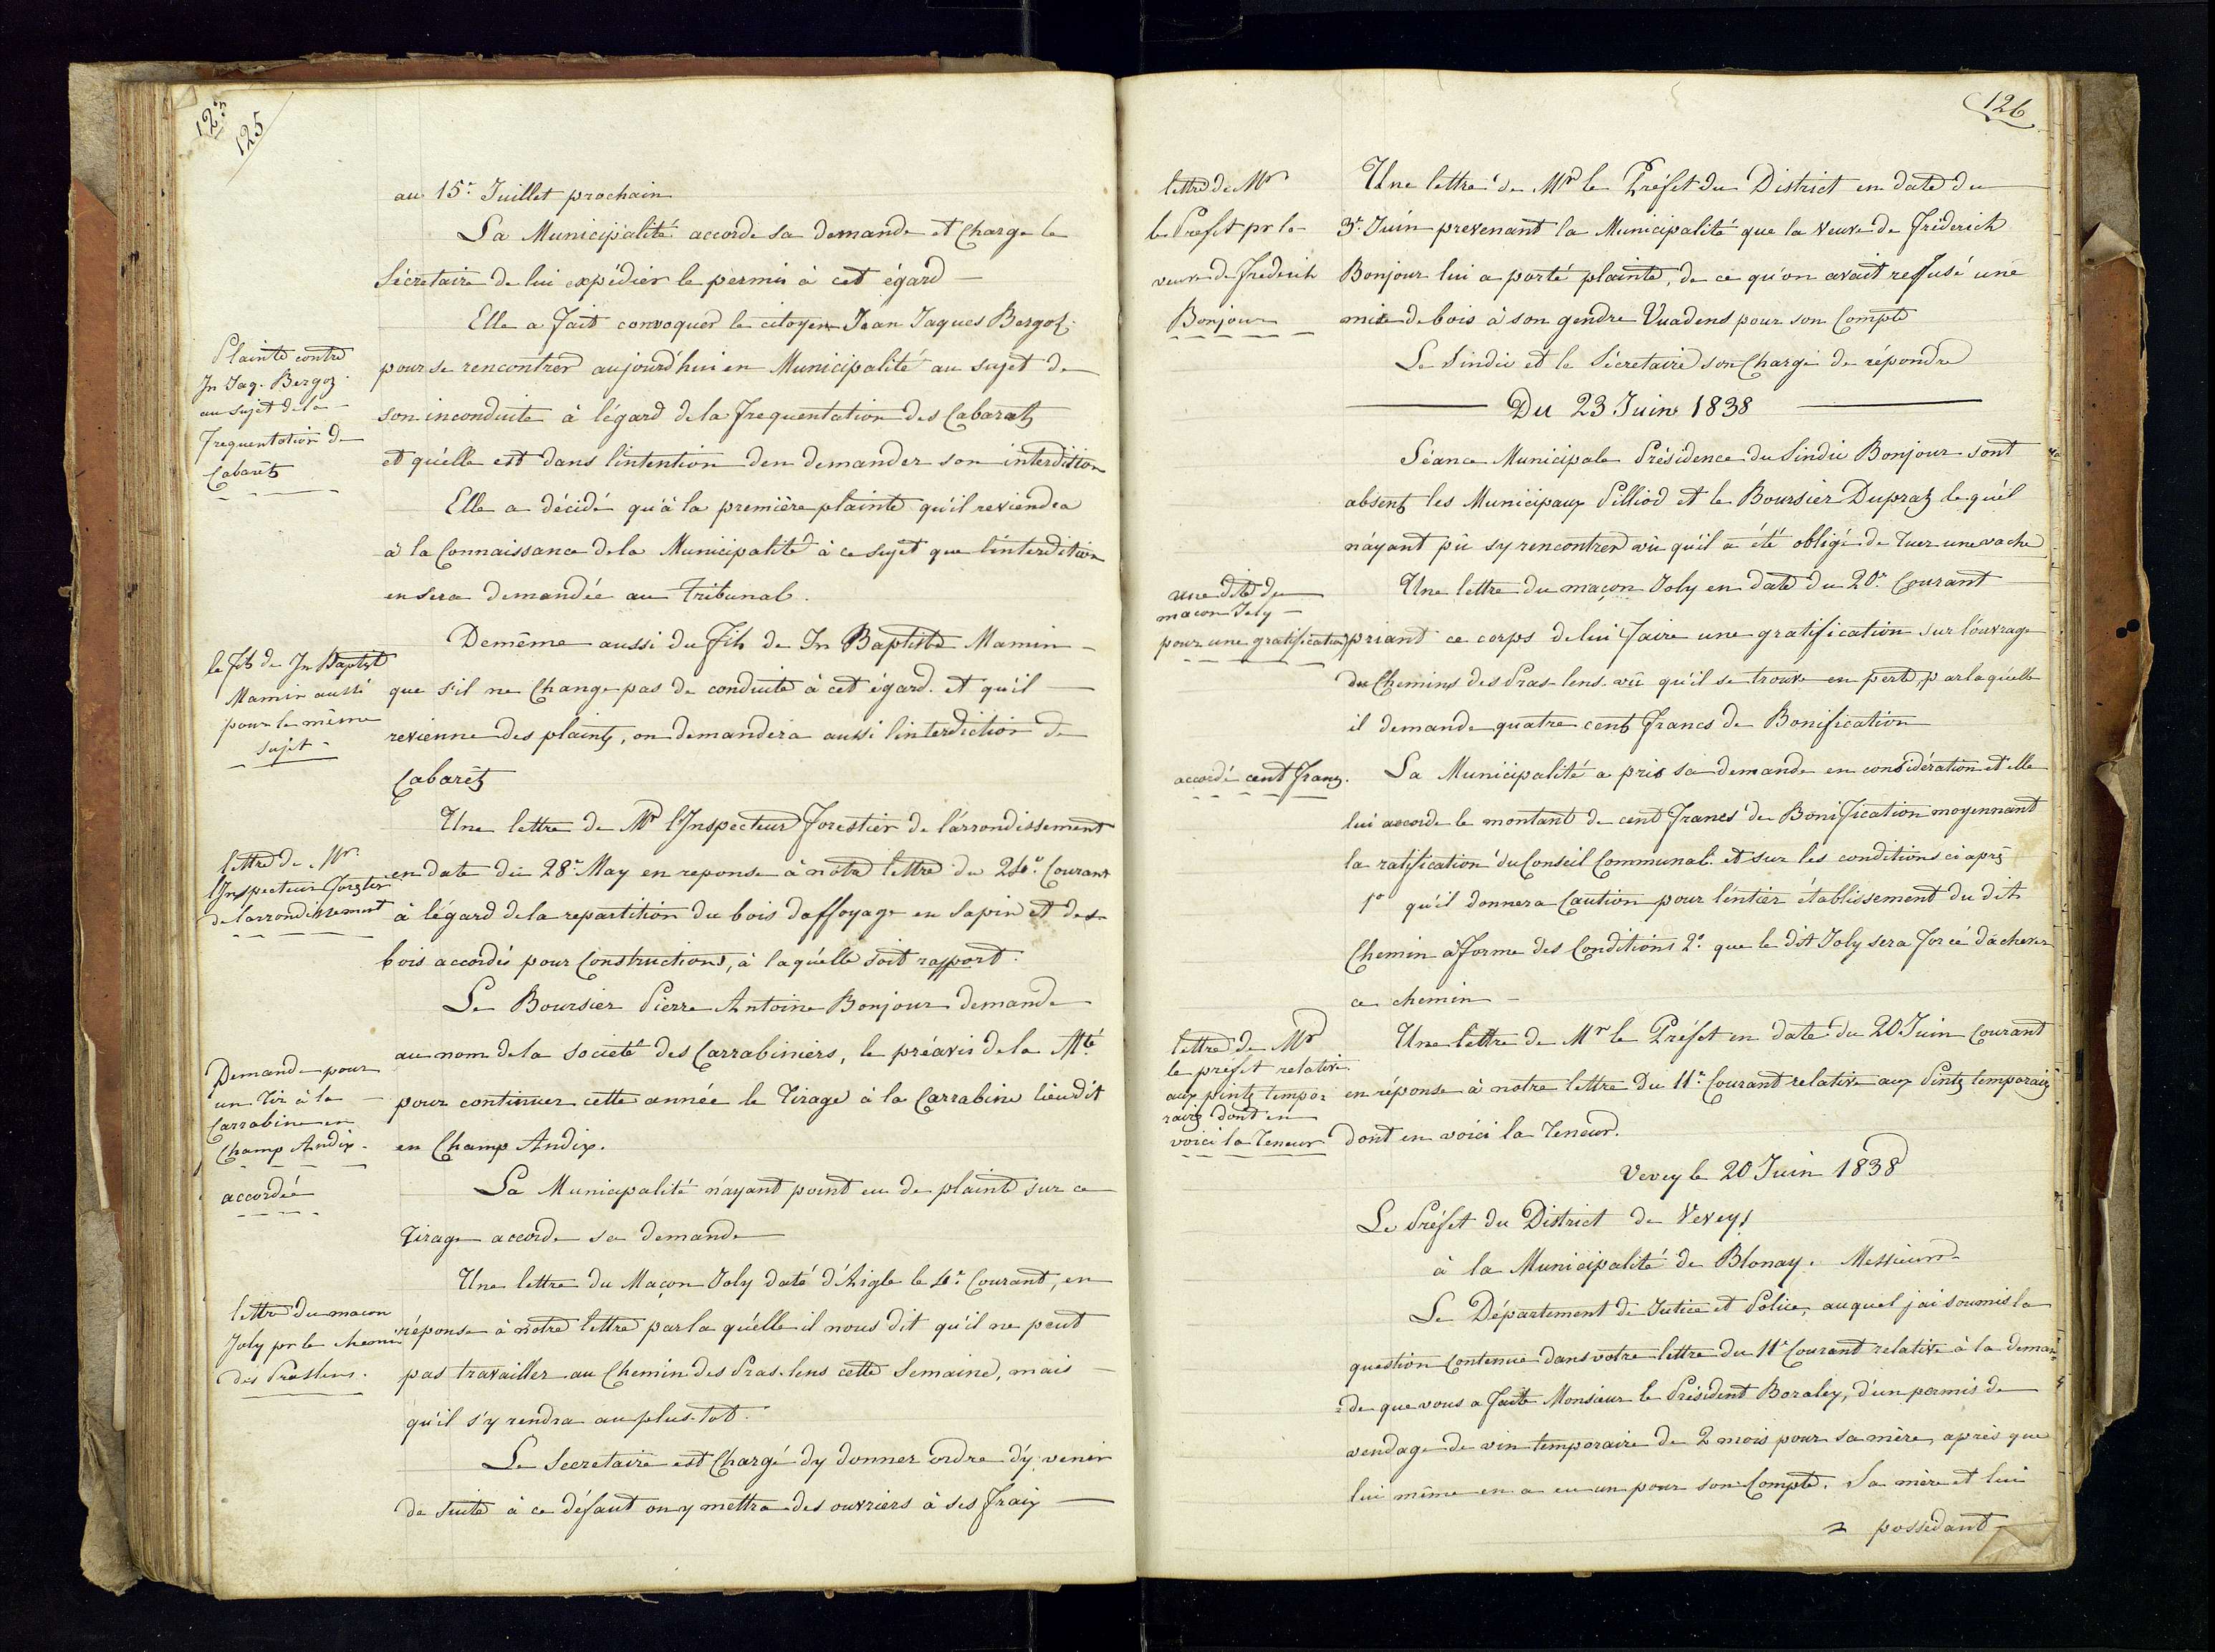 125
125
au 15.e Juillet prochain
La Municipalité accorde sa demande et Charge le
Sécretaire de lui expédier le permis à cet égard —
Plainte contre
Jn Jaq. Bergoz
au sujet de la
frequentation de
Cabarets
Elle a fait convoquer le citoyen Jean Jaques Bergoz
pour se rencontrer aujourd'hui en Municipalité au sujet de
son inconduite à légard de la frequentation des Cabarets
et qu'elle est dans l'intention den demander son interdiction
Elle a décidé qu'à la première plainte qu'il reviendra
à la Connaissance de la Municipalité à ce sujet que l'interdition
en sera demandée au Tribunal.
le fils de Jn Baptist
Mamin aussi
pour le même
sujet -
Demême aussi du fils de Jn Baptiste Mamin -
que s'il ne Change pas de conduite à cet égard et qu'il —
revienne des plaints, on demandera aussi linterdiction de
Cabarêts
lettre de Mr
l'Inspecteur Forestier
de larrondissement
Une lettre de Mr l'Inspecteur forestier de l'arrondissement
en date du 28.e May en reponse à notre lettre du 24.e Courant
à légard de la repartition du bois daffoyage en sapin et des
bois accordés pour Constructions, à laquélle soit rapport.
Demande pour
un Tir à la —
Carrabine en
Champ Andix -
accordée
Le Boursier Pierre Antoine Bonjour demande
au nom de la société des Carrabiniers, le préavis de la Mté
pour continuer cette année le Tirage à la Carrabine lieu dit
en Champ Andix.
La Municipalité n'ayant point eu de plainte sur ce
Tirage accorde sa demande
lettre du macon
Joly pr le chemin
des Praslens.
Une lettre du Maçon Joly daté d'Aigle le 4.e Courant, en
réponse à notre lettre par la quélle il nous dit qu'il ne peut
pas travailler au Chemin des Pras-lens cette Semaine, mais —
qu'il s'y rendra au plus-tot.
Le Secretaire est Chargé d'y donner ordre d'y venir
de suite à ce défaut on y mettra des ouvriers à ses fraix —
126
lettre de Mr
le Prefet pr la
veuve de frederich
Bonjour
Une lettre de Mr le Préfet du District en date du
3.e Juin prevenant la Municipalité que la Veuve de fréderich
Bonjour lui a porté plainte, de ce qu'on avait reffusé une
mise de bois à son gendre Vuadens pour son Compte
Le Sindic et le Sécretaire son Chargé de répondre
Du 23 Juin 1838
Séance Municipale Présidence du Sindic Bonjour sont
absents les Municipaux Pilliod et le Boursier Dupraz lequél
n'áyant pû sy rencontrer vû qu'il a été obligé de Tuer une vache
une dite du
macon Joly —
pour une gratification
Une lettre du maçon Joly en date du 20.e Courant
priant ce corps de lui faire une gratification sur l'ouvrage
du Chemins des Pras-lens vû qu'il se trouve en perte, par laquélle
il demande quatre cents francs de Bonification
accordé cent francs.
La Municipalité a pris sa demande en considération et elle
lui accorde le montant de cent francs de Bonification moyennant
la ratification du Conseil Communal et sur les conditions ci après
1o qu'il donnera Caution pour léntier établissement du dit
Chemin à forme des Conditions 2o que le dit Joly sera forcé d'achever
ce chemin —
lettre de Mr
le préfet relative
aux pints tempo=
raires dont en
voici la Teneur
Une lettre de Mr le Préfet en date du 20 Juin Courant
en réponse à notre lettre du 11.e Courant relative aux Pints temporaires
dont en voici la Teneur.
Vevey le 20 Juin 1838
Le Préfet du District de Vevey,
à la Municipalité de Blonay. Messieurs
Le Département de Justice et Police, auquel j'ai soumis la
question Contenue dans votre lettre du 11.e Courant relative à la deman=
=de que vous a faite Monsieur le Président Boraley, d'un permis de
vendage de vin temporaire de 2 mois pour sa mère, après que
lui même en a eu un pour son Compte. Sa mère et lui
possedant